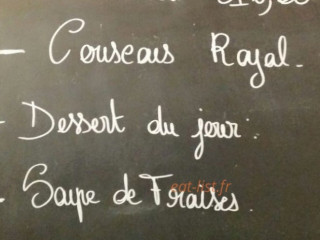 - Couscous Royal.
- Dessert du jour :
- Soupe de Fraises.
eat-list.fr